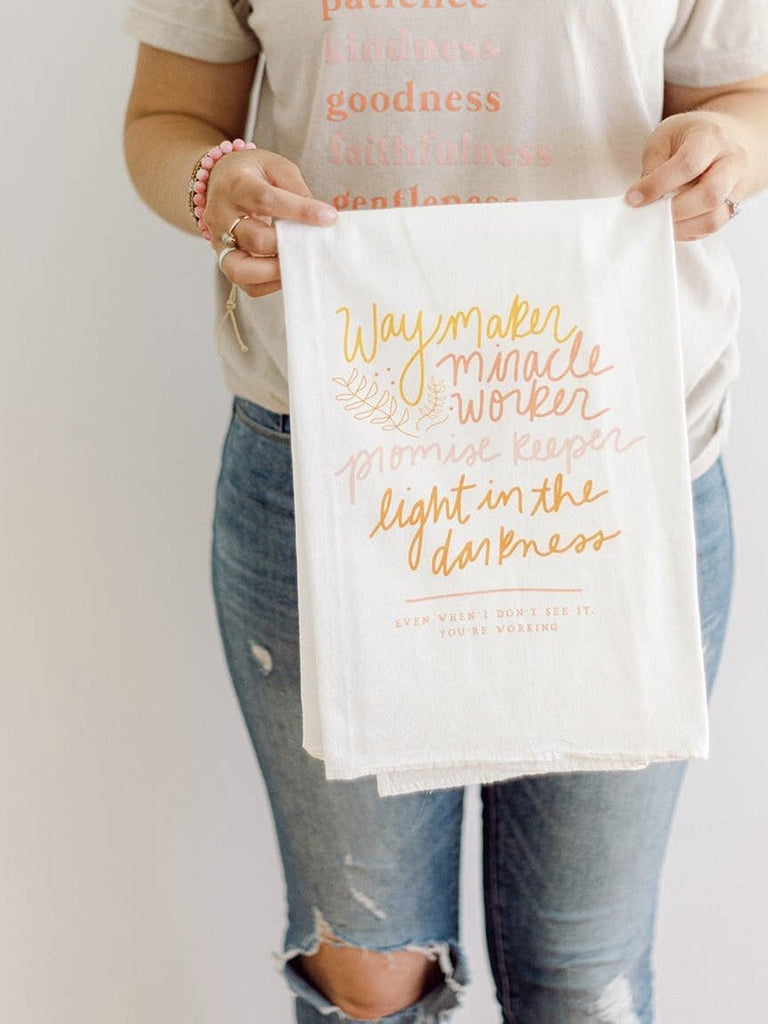 patience
kindness
goodness
faithfulness
gentleness
Way maker
miracle
worker
promise keeper
light in the
darkness
EVEN WHEN I DON'T SEE IT,
YOU'RE WORKING